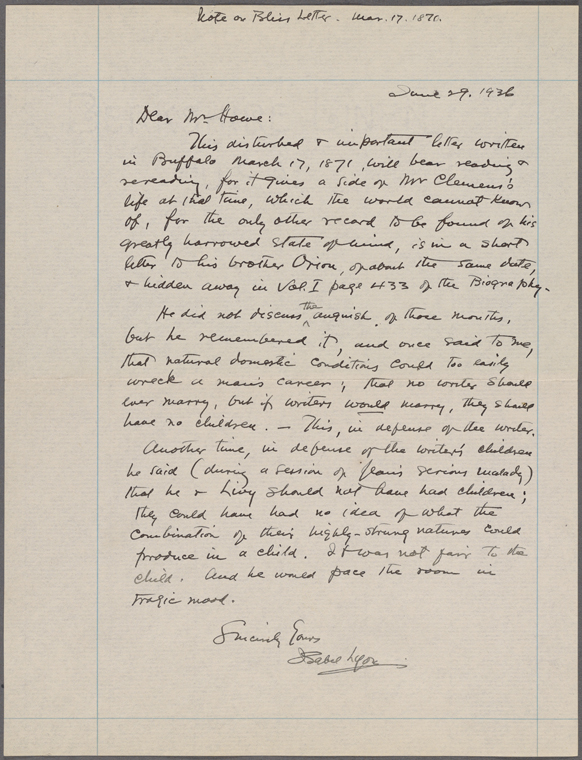 Note on Bliss Letter. Mar. 17. 1871.
June 29. 1936
Dear Mr. Howe:
This disturbed & important letter written
in Buffalo March 17, 1871, will bear reading &
rereading, for it gives a side of Mr Clemens's
life at that time, which the world cannot know
of, for the only other record to be found of his
greatly harrowed state of mind, is in a short
letter to his brother Orion, of about the same date,
& hidden away in Vol. I page 433 of the Biography.
He did not discuss the anguish of those months,
but he remembered it, and once said to me,
that natural domestic conditions could too easily
wreck a man's career; that no writer should
ever marry, but if writers would marry, they should
have no children. — This, in defense of the writer.
Another time, in defense of the writer's children
he said (during a session of Jean's serious malady)
that he & Livy should not have had children;
they could have had no idea of what the
combination of their highly-strung natures could
produce in a child. It was not fair to the
child. And he would pace the room in
tragic mood.
Sincerely Yours
Isabel Lyon